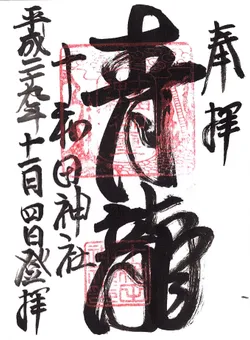 奉拝
青龍
十和田神社
平成二十九年十一月四日登拝